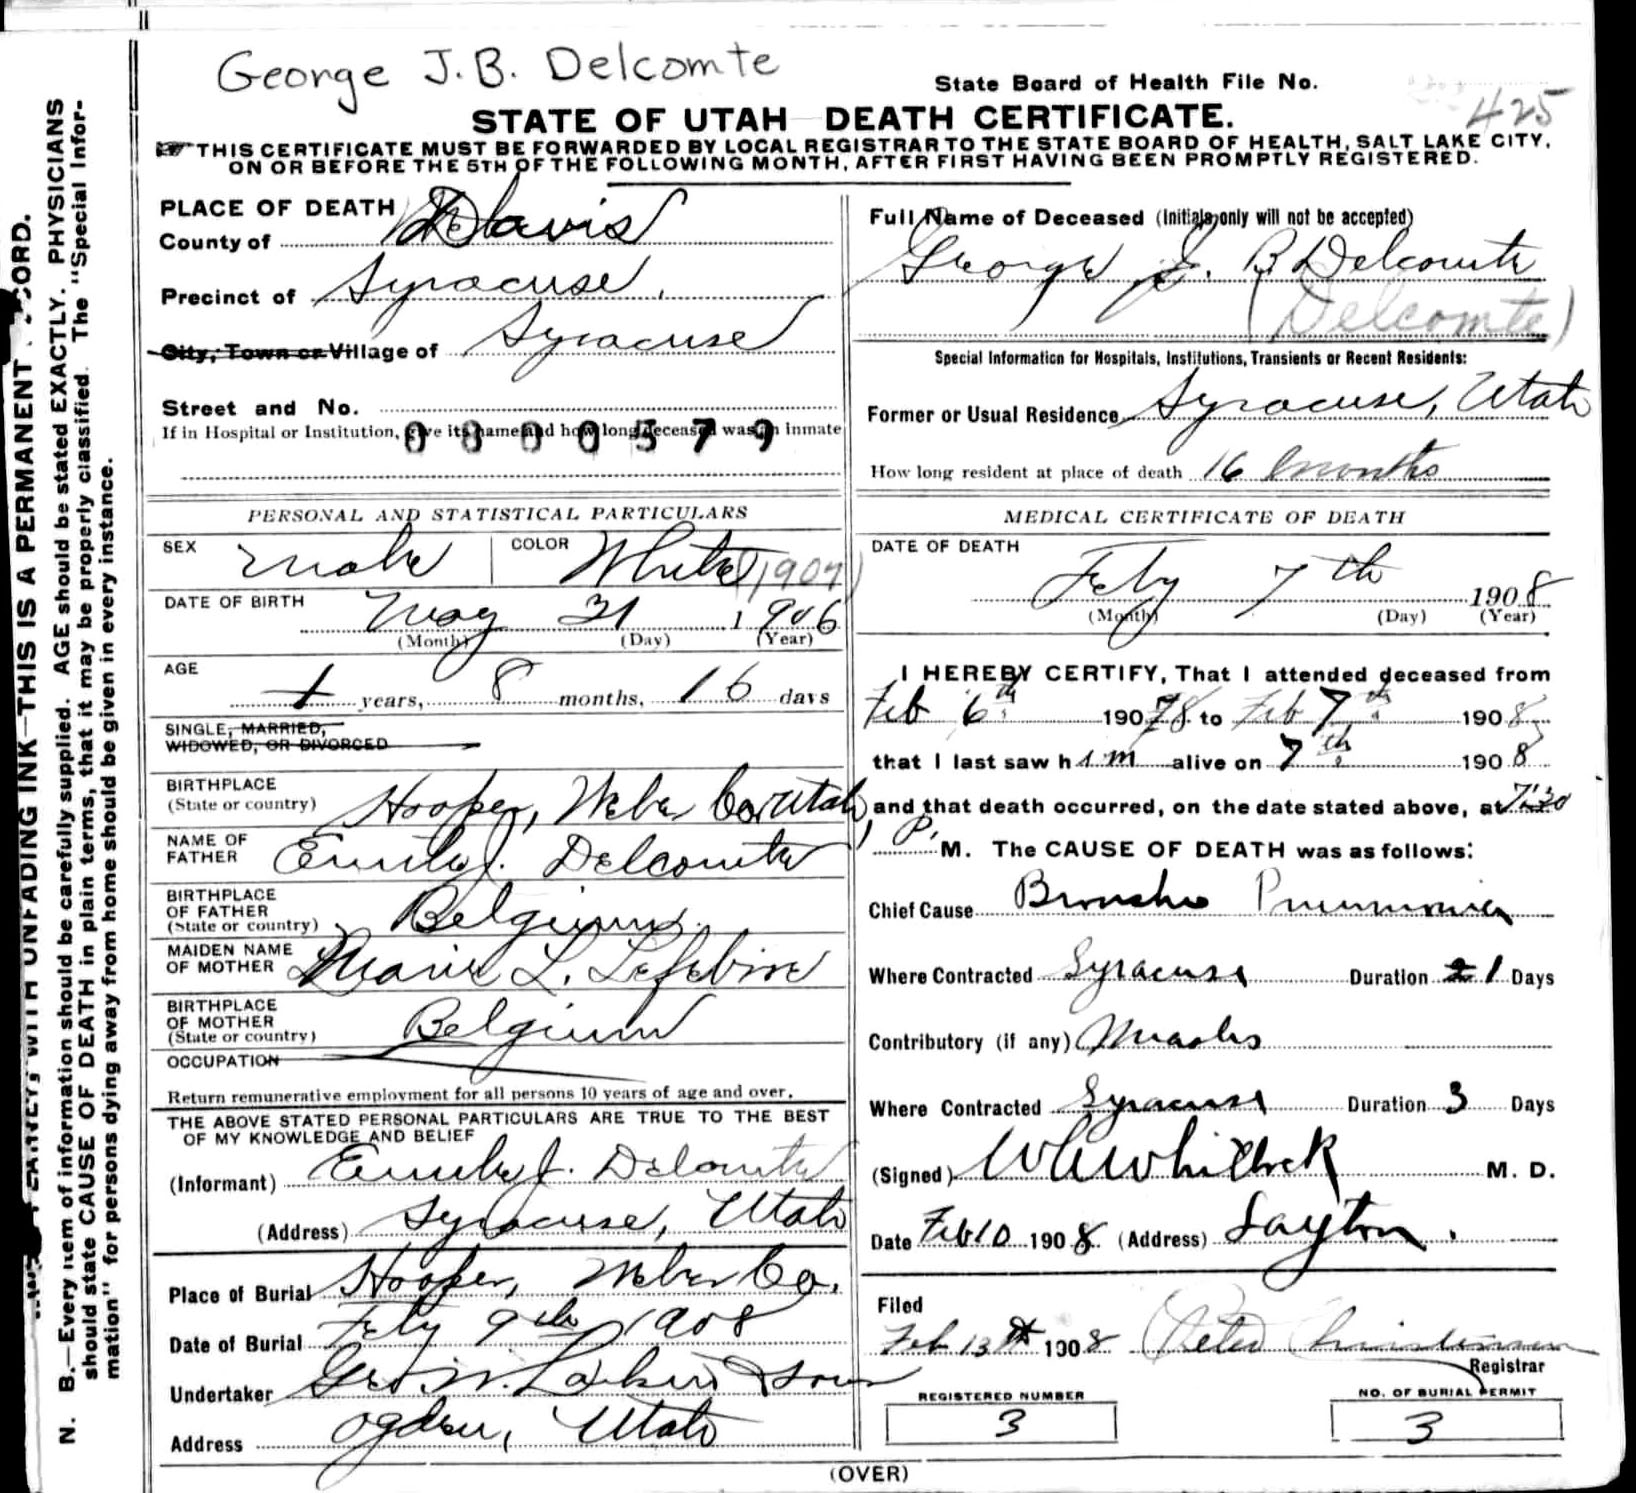 George J.B. Delcomte
State Board of Health File No.
425
STATE OF UTAH DEATH CERTIFICATE.
THIS CERTIFICATE MUST BE FORWARDED BY LOCAL REGISTRAR TO THE STATE BOARD OF HEALTH, SALT LAKE CITY,
ON OR BEFORE THE 5TH OF THE FOLLOWING MONTH, AFTER FIRST HAVING BEEN PROMPTLY REGISTERED.
PLACE OF DEATH
County of Davis
Precinct of Syracuse
City, Town or Village of Syracuse
Street and No.
If in Hospital or Institution, give its name and how long deceased was an inmate
0800579
Full Name of Deceased (Initials only will not be accepted)
George J. B Delcomte
(Delcomte)
Special Information for Hospitals, Institutions, Transients or Recent Residents:
Former or Usual Residence Syracuse, Utah
How long resident at place of death 16 months
PERSONAL AND STATISTICAL PARTICULARS
SEX Male COLOR White
DATE OF BIRTH May 21 1906
(Month) (Day) (Year)
AGE
1 years, 8 months, 16 days
SINGLE, MARRIED,
WIDOWED, OR DIVORCED
BIRTHPLACE
(State or country) Hooper, Weber Co. Utah
NAME OF
FATHER J. Delcomte
BIRTHPLACE
OF FATHER
(State or country) Belgium
MAIDEN NAME
OF MOTHER Marie L. Lefebire
BIRTHPLACE
OF MOTHER
(State or country) Belgium
OCCUPATION
Return remunerative employment for all persons 10 years of age and over.
THE ABOVE STATED PERSONAL PARTICULARS ARE TRUE TO THE BEST
OF MY KNOWLEDGE AND BELIEF
(Informant) J. Delcomte
(Address) Syracuse, Utah
Place of Burial Hooper, Weber Co.
Date of Burial Feby 9th 1908
Undertaker Geo. W. Larkin & Sons
Address Ogden, Utah
MEDICAL CERTIFICATE OF DEATH
DATE OF DEATH
Feby 7th 1908
(Month) (Day) (Year)
I HEREBY CERTIFY, That I attended deceased from
Feb 6th 1908 to Feb 7th 1908
that I last saw him alive on 7th 1908
and that death occurred, on the date stated above, at 7:30
P. M. The CAUSE OF DEATH was as follows:
Chief Cause Broncho Pneumonia
Where Contracted Syracuse Duration 1 Days
Contributory (if any) Measles
Where Contracted Syracuse Duration 3 Days
(Signed) M. D.
Date Feb 10 1908 (Address) Layton.
Filed
Feb 13th 1908 Peter Christensen
Registrar
REGISTERED NUMBER
3
NO. OF BURIAL PERMIT
3
(OVER)
THIS IS A PERMANENT
N. B.—Every item of information should be carefully supplied. AGE should be stated EXACTLY. PHYSICIANS
should state CAUSE OF DEATH in plain terms, that it may be properly classified. The "Special Infor-
mation" for persons dying away from home should be given in every instance.